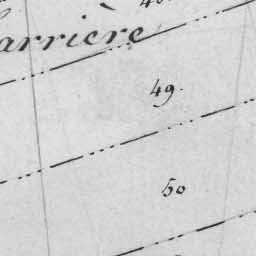 arrière
49.
50